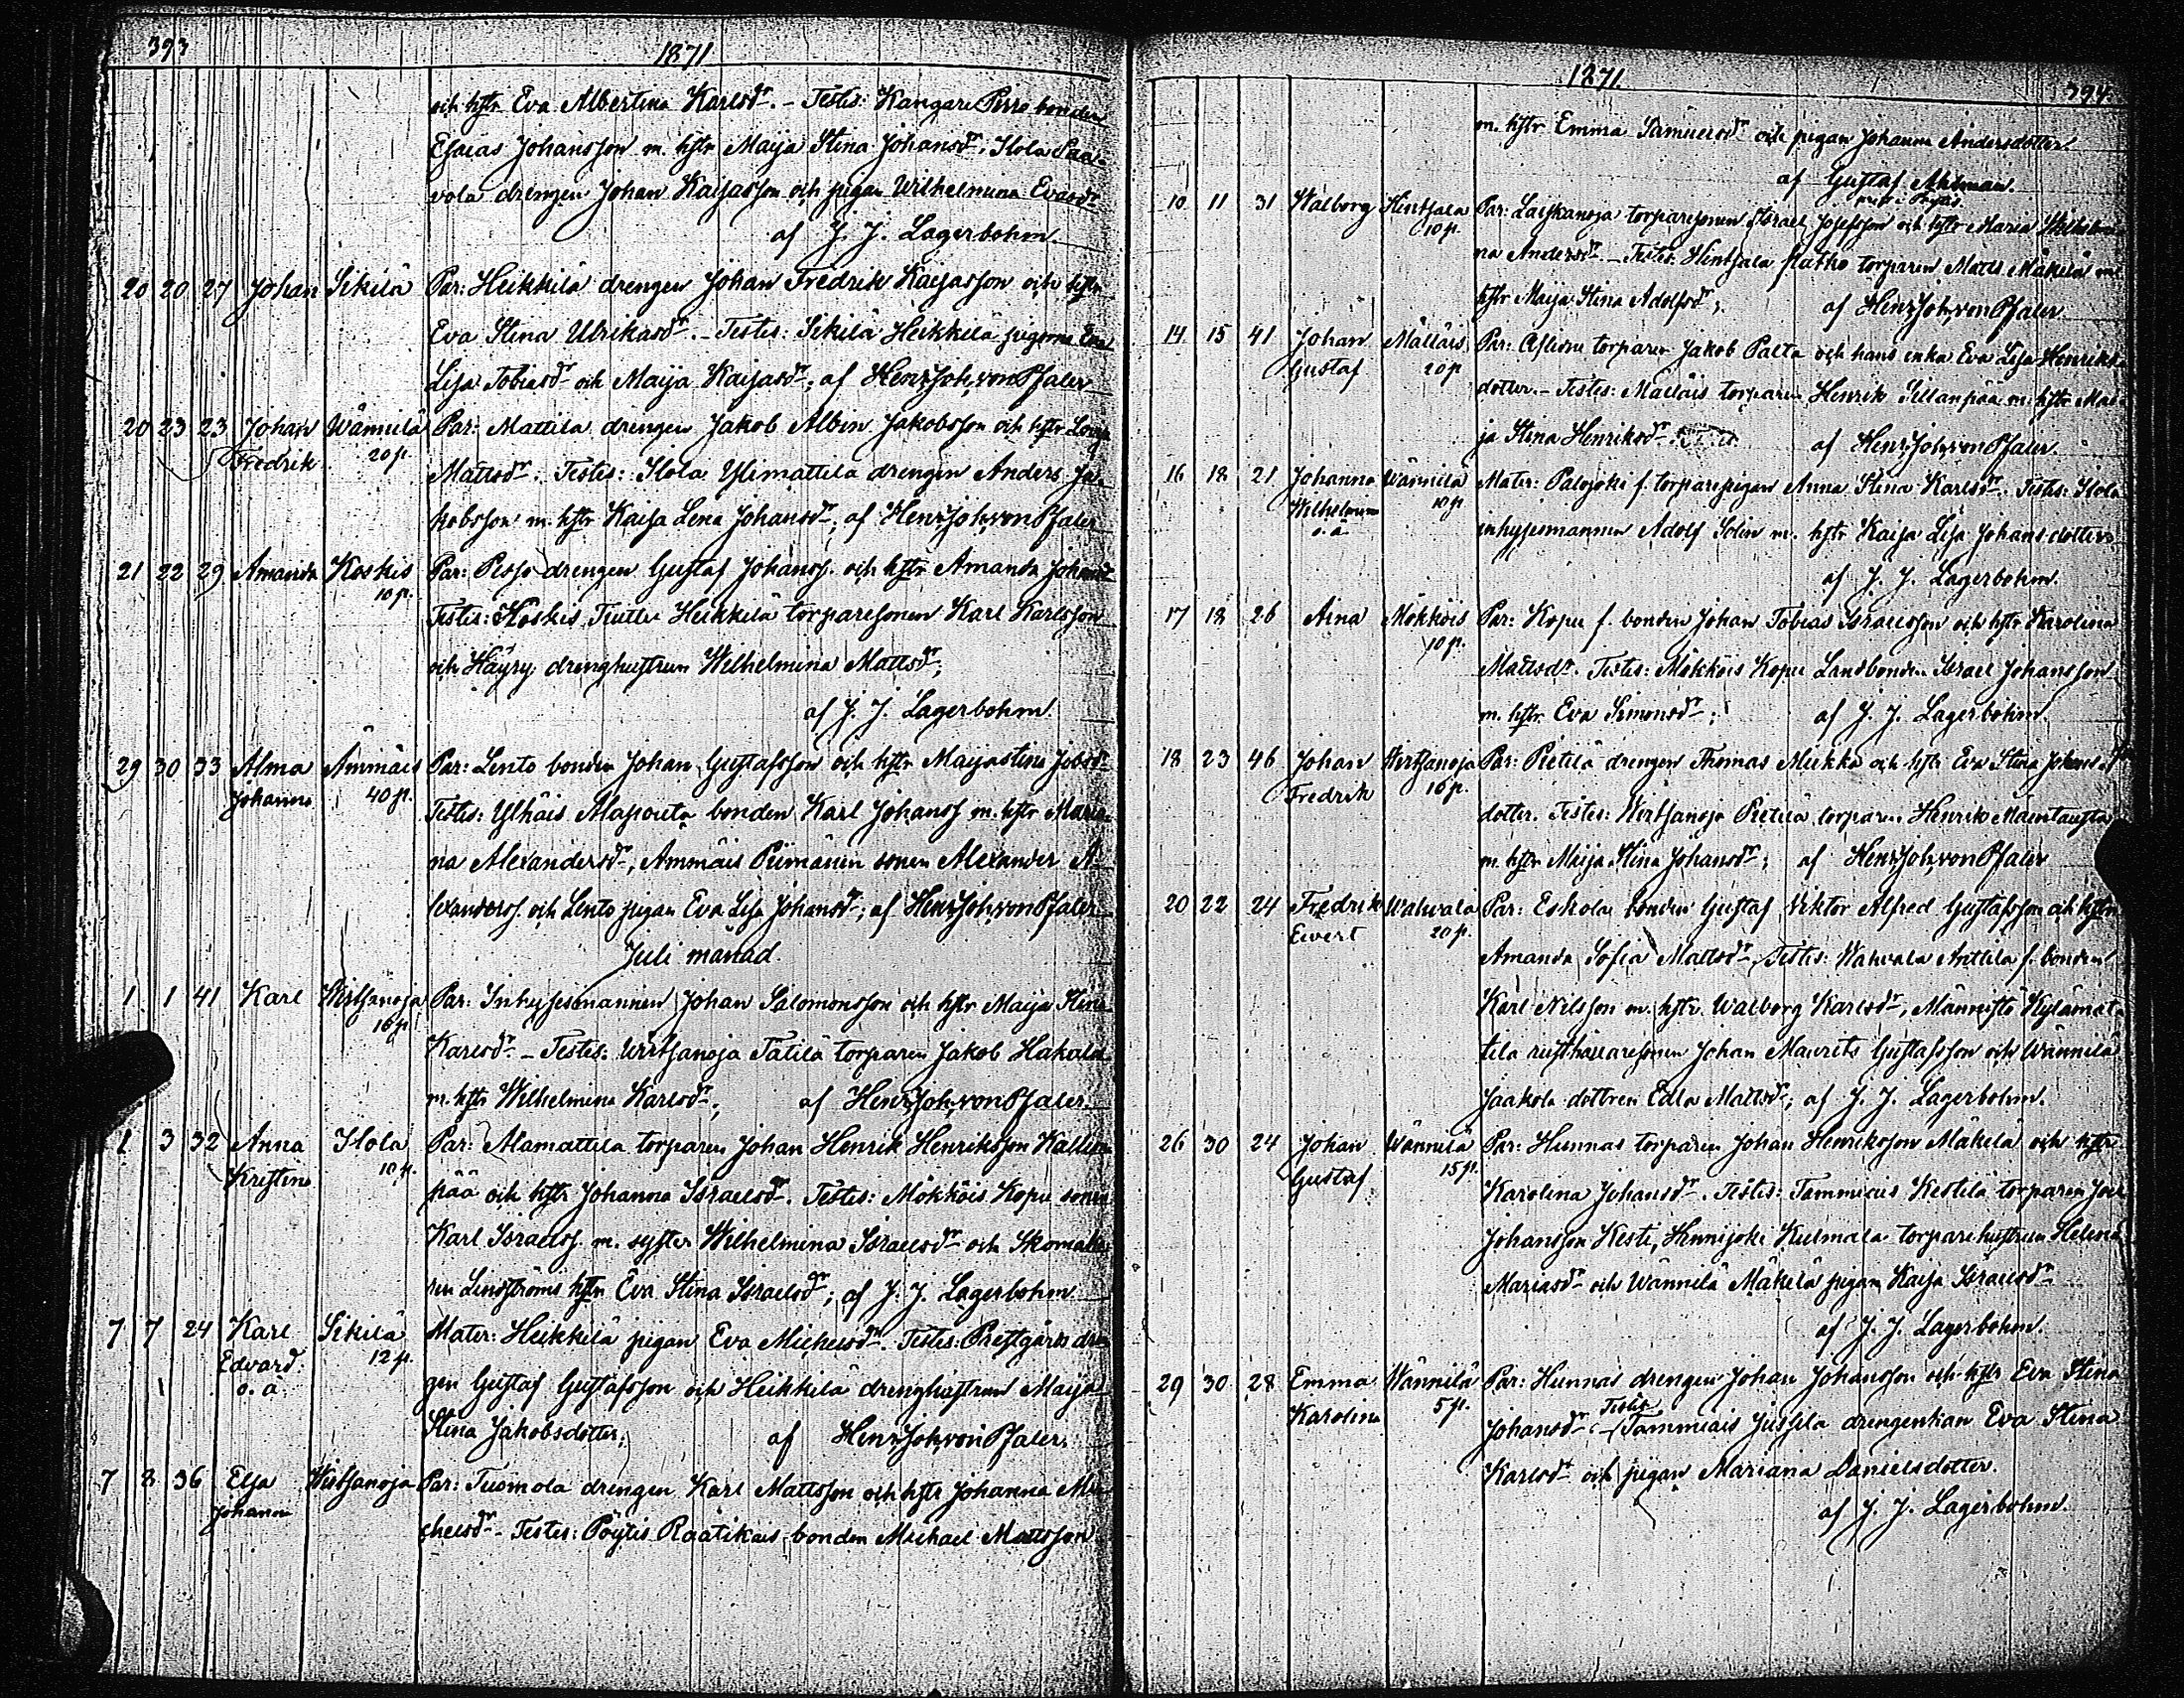 393
1871
och hstr Eva Albertina Karlsdr. – Testes: Kangare Pirre bonden
Esaias Johansson m. hstr Maija Stina Johansdr, Ilola Paa-
vola drengen Johan Kaijasson och pigan Wilhelmina Evasdr
af J. J. Lagerbohm.
20 20 27 Johan Sikilä Par: Heikkilä drengen Johan Fredrik Kaijasson och hstr
Eva Stina Ulrikasdr. – Testes: Sikilä Heikkilä pigorna Eva
Lisa Tobiasdr och Maija Kaijasdr; af Henr. Joh. von Pfaler
20 23 23 Johan Wännilä Par: Mattila drengen Jakob Albin Jakobsson och hstr Lovisa
Fredrik 20 p. Mattsdr. Testes: Ilola Ylimattila drengen Anders Ja-
kobsson m. hstr Kaisa Lena Johansdr; af Henr. Joh. von Pfaler
21 22 29 Amanda Koskis Par: Pesso drengen Gustaf Johanss. och hstr Amanda Johansdr
10 p. Testes: Koskis Heikkilä torparesonen Karl Karlsson
och Häyry drenghustrun Wilhelmina Mattsdr;
af J. J. Lagerbohm.
29 30 33 Alma Ämmäis Par: Lento bonden Johan Gustafsson och hstr Maijastina Jobsdr
Johanna 40 p. Testes: Ylhäis Alapouta bonden Karl Johanss m. hstr Maria-
na Alexandersdr, Ämmäis Piimänen sonen Alexander A-
lexanderss. och Lento pigan Eva Lisa Johansdr; af Henr. Joh. von Pfaler
Juli månad.
1 1 41 Karl Wirtsanoja Par: Inhysesmannen Johan Salomonsson och hstr Maija Stina
16 p. Karlsdr – Testes: Wirtsanoja Tätilä torparen Jakob Hakala
m. hstr Wilhelmina Karlsdr; af Henr. Joh. von Pfaler.
1 3 32 Anna Ilola Par: Alamattila torparen Johan Henrik Henriksson Kallion-
Kristina 10 p. pää och hstr Johanna Israelsdr. Testes: Mökköis Kopu sonen
Karl Israelss. m. syster Wilhelmina Israelsdr och Skomaka-
ren Lindströms hstr Eva Stina Israelsdr; af J. J. Lagerbohm
7 7 24 Karl Sikilä Mater: Heikkilä pigan Eva Michelsdr. Testes: Prestgårds dren-
Edvard 12 p.
o. ä. gen Gustaf Gustafsson och Heikkilä drenghustrun Maija
Stina Jakobsdotter; af Henr. Joh. von Pfaler.
7 8 36 Elsa Wirtsanoja Par: Tuomola drengen Karl Mattsson och hstr Johanna Mi-
Johanna chelsdr – Testes: Pöytis Raatikais bonden Michael Mattsson
1871.
394.
m. hstr Emma Samuelsdr och pigan Johanna Andersdotter.
af Gustaf Ahlman.
prest i Pöytis.
10 11 31 Walborg Hintsala Par: Laiskanoja torparesonen Israel Josefsson och hstr Maria Wilhelmi-
10 p. na Andersdr. – Testes: Hintsala torparen Matts Mäkelä m.
hstr Maija Stina Adolfsdr; af Henr. Joh. von Pfaler.
14 15 41 Johan Mälläis Par: torparen Jakob Palta och hans enka Eva Lisa Henriks-
Gustaf 20 p dotter. – Testes: Mälläis torparen Henrik Sillanpää m. hstr Mai-
ja Stina Henriksdr. af Henr. Joh. von Pfaler.
16 18 21 Johanna Wännilä Mater: Palojoki f. torparepigan Anna Stina Karlsdr. Testes: Ilola
Wilhelmina 10 p
o. ä. inhysesmannen Adolf Solin m. hstr Kaisa Lisa Johansdotter;
af J. J. Lagerbohm.
17 18 26 Aina Mökköis Par: Kopu f. bonden Johan Tobias Israelsson och hstr Karolina
10 p. Mattsdr. Testes: Mökköis Kopu Landbonden Israel Johansson
m. hstr Eva Simonsdr; af J. J. Lagerbohm.
18 23 46 Johan Wirtsanoja Par: Pietilä drengen Thomas Miekka och hstr Eva Stina Johans-
Fredrik 16 p. dotter. Testes: Wirtsanoja Pietilä torparen Henrik Mäentausta
m. hstr Maija Stina Johansdr; af Henr. Joh. von Pfaler
20 22 24 Fredrik Wahvala Par: Eskola bonden Gustaf Viktor Alfred Gustafsson och hstr
Evert 20 p. Amanda Sofia Mattsdr, Testes: Wahvala Anttila f. bonden
Karl Nilsson m. hstr. Walborg Karlsdr, Männistö Kylämat-
tila rusthållaresonen Johan Maurits Gustafsson och Wännilä
Jaakola dottren Edla Mattsdr; af J. J. Lagerbohm.
26 30 24 Johan Wännilä Par: Hunnas torparen Johan Henriksson Mäkelä och hstr
Gustaf 15 p. Karolina Johansdr. Testes: Tammiais Kestilä torparen Joel
Johansson Kesti, Hennijoki Kulmala torparehustrun Helena
Mariasdr och Wännilä Mäkelä pigan Kaisa Israelsdr
af J. J. Lagerbohm.
29 30 28 Emma Wännilä Par: Hunnas drengen Johan Johansson och hstr Eva Stina
Karolina 5 p. Johansdr. – Testes: Tammiais Jussila drengenkan Eva Stina
Karlsdr och pigan Mariana Danielsdotter.
af J. J. Lagerbohm.